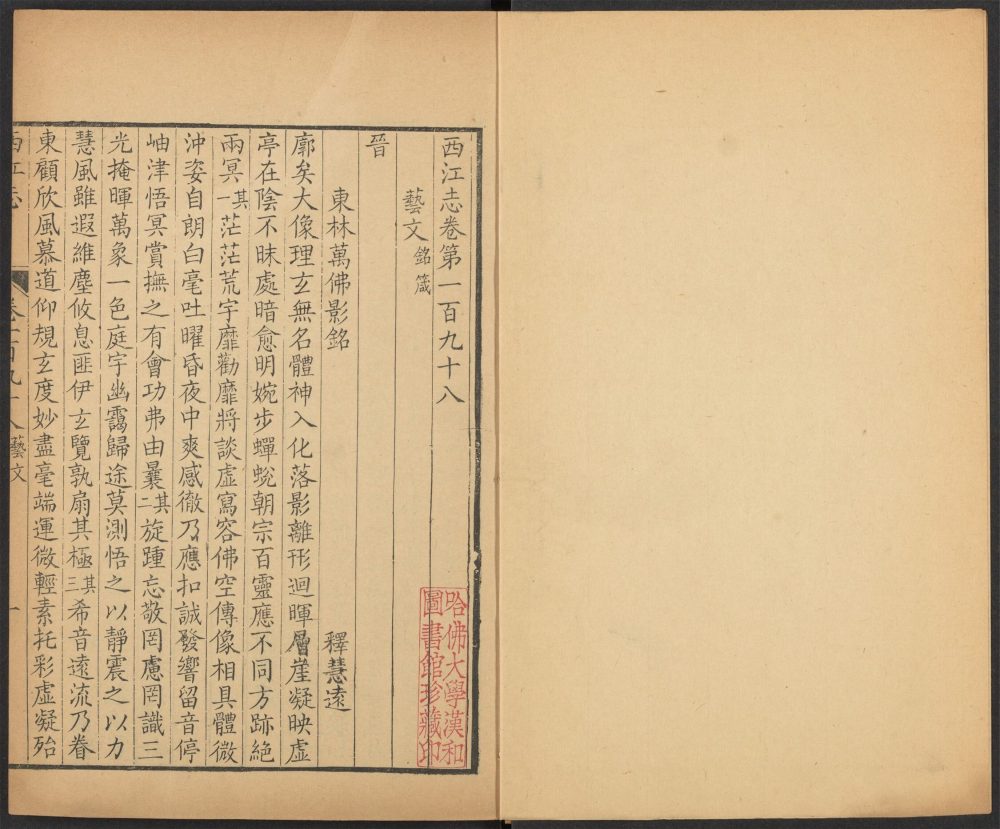 西江志卷第一百九十八
藝文銘箴
晉
東林萬佛影銘 釋慧遠
廓矣大像理玄無名體神入化落影離形迴暉層崖凝映虛
亭在陰不昧處暗愈明婉步蟬蛻朝宗百靈應不同方跡絕
兩冥其一茫茫荒宇靡勸靡將談虛寫容佛空傳像相具體微
沖姿自朗白毫吐曜昏夜中爽感徹乃應扣誠發響留音停
岫津悟冥賞撫之有會功弗由曩其二旋踵忘敬罔慮罔識三
光掩暉萬象一色庭宇幽靄歸途莫測悟之以靜震之以力
慧風雖遐維塵攸息匪伊玄覽孰扇其極其三希音遠流乃眷
東顧欣風慕道仰規玄度妙盡毫端運微輕素托彩虛凝殆
西江志 卷一百九十八 藝文 一
哈佛大學漢和
圖書館珍藏印